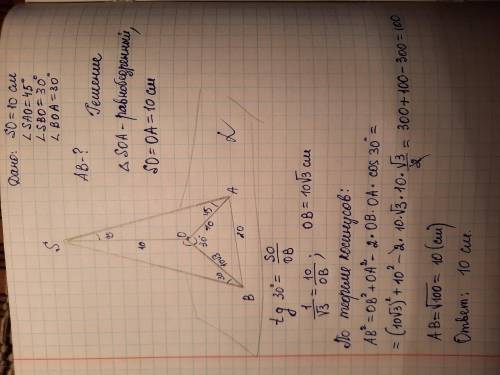 Дано: SO = 10 см
∠SAO = 45°
∠SBO = 30°
∠BOA = 30°
AB - ?
Решение
△SOA - равнобедренный,
SO = OA = 10 см
S
10
O
30°
10
45
A
30
10√3
B
α
tg 30° = SO/OB
1/√3 = 10/OB ; OB = 10√3 см
По теореме косинусов:
AB² = OB² + OA² - 2·OB·OA·cos 30° =
= (10√3)² + 10² - 2·10·√3·10·√3/2 = 300 + 100 - 300 = 100
AB = √100 = 10 (см)
Ответ: 10 см.